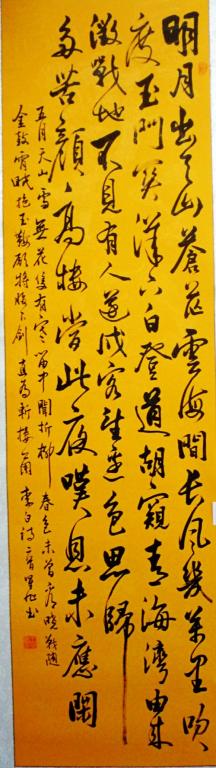 明月出天山蒼茫雲海間長風幾萬里吹
度玉門關漢下白登道胡窺青海灣由來
徵戰地不見有人還戍客望邊色思歸
多苦顏高樓當此夜嘆息未應閑
五月天山雪無花隻有寒笛中聞折柳春色未曾看曉戰隨
金鼓宵眠抱玉鞍願將腰下劍直為斬樓蘭李白詩二首書